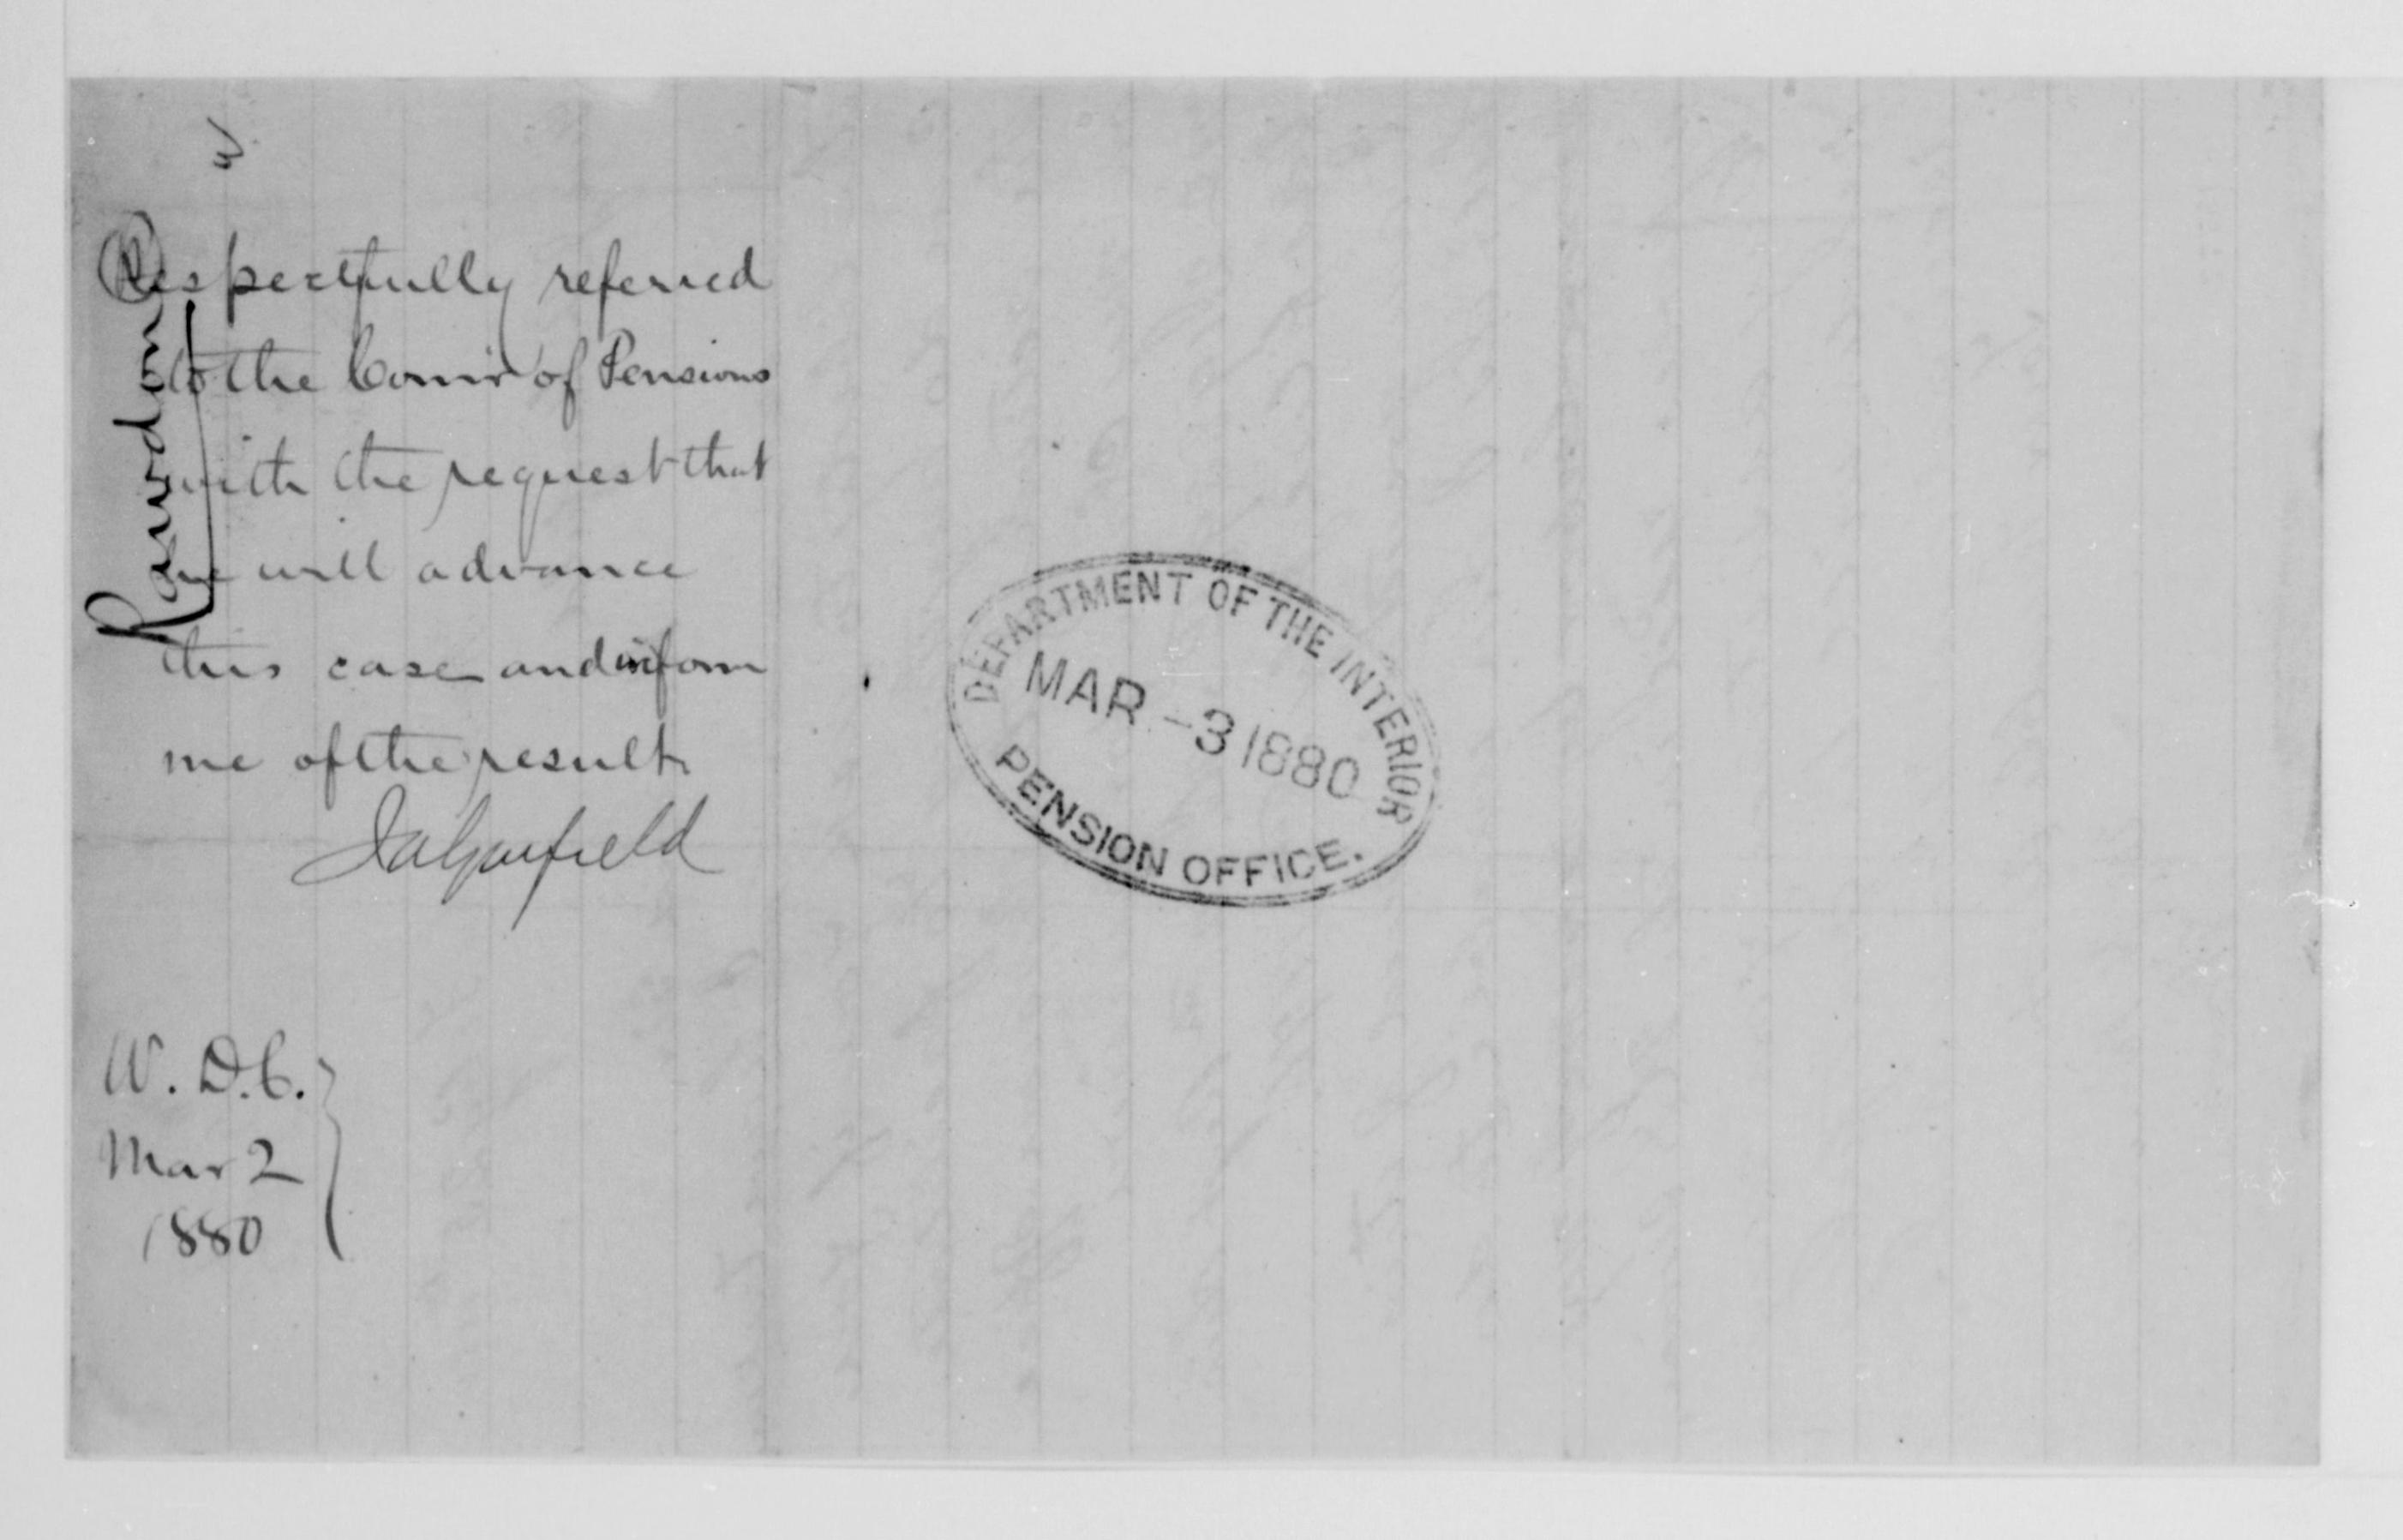 Respectfully referred
to the Comr of Pensions
with the request that
he will advance
this case and inform
me of the result
JAGarfield
W. D.C.
Mar 2
1880
Rawdon
DEPARTMENT OF THE INTERIOR
MAR -3 1880
PENSION OFFICE.